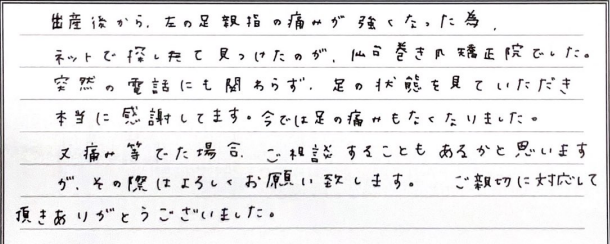 出産後から、左の足親指の痛みが強くなった為、
ネットで探し当て見つけたのが、仙台巻き爪矯正院でした。
突然の電話にも関わらず、足の状態を見ていただき
本当に感謝してます。今では足の痛みもなくなりました。
又痛み等でた場合、ご相談することもあるかと思います
が、その際はよろしくお願い致します。 ご親切に対応して
頂きありがとうございました。